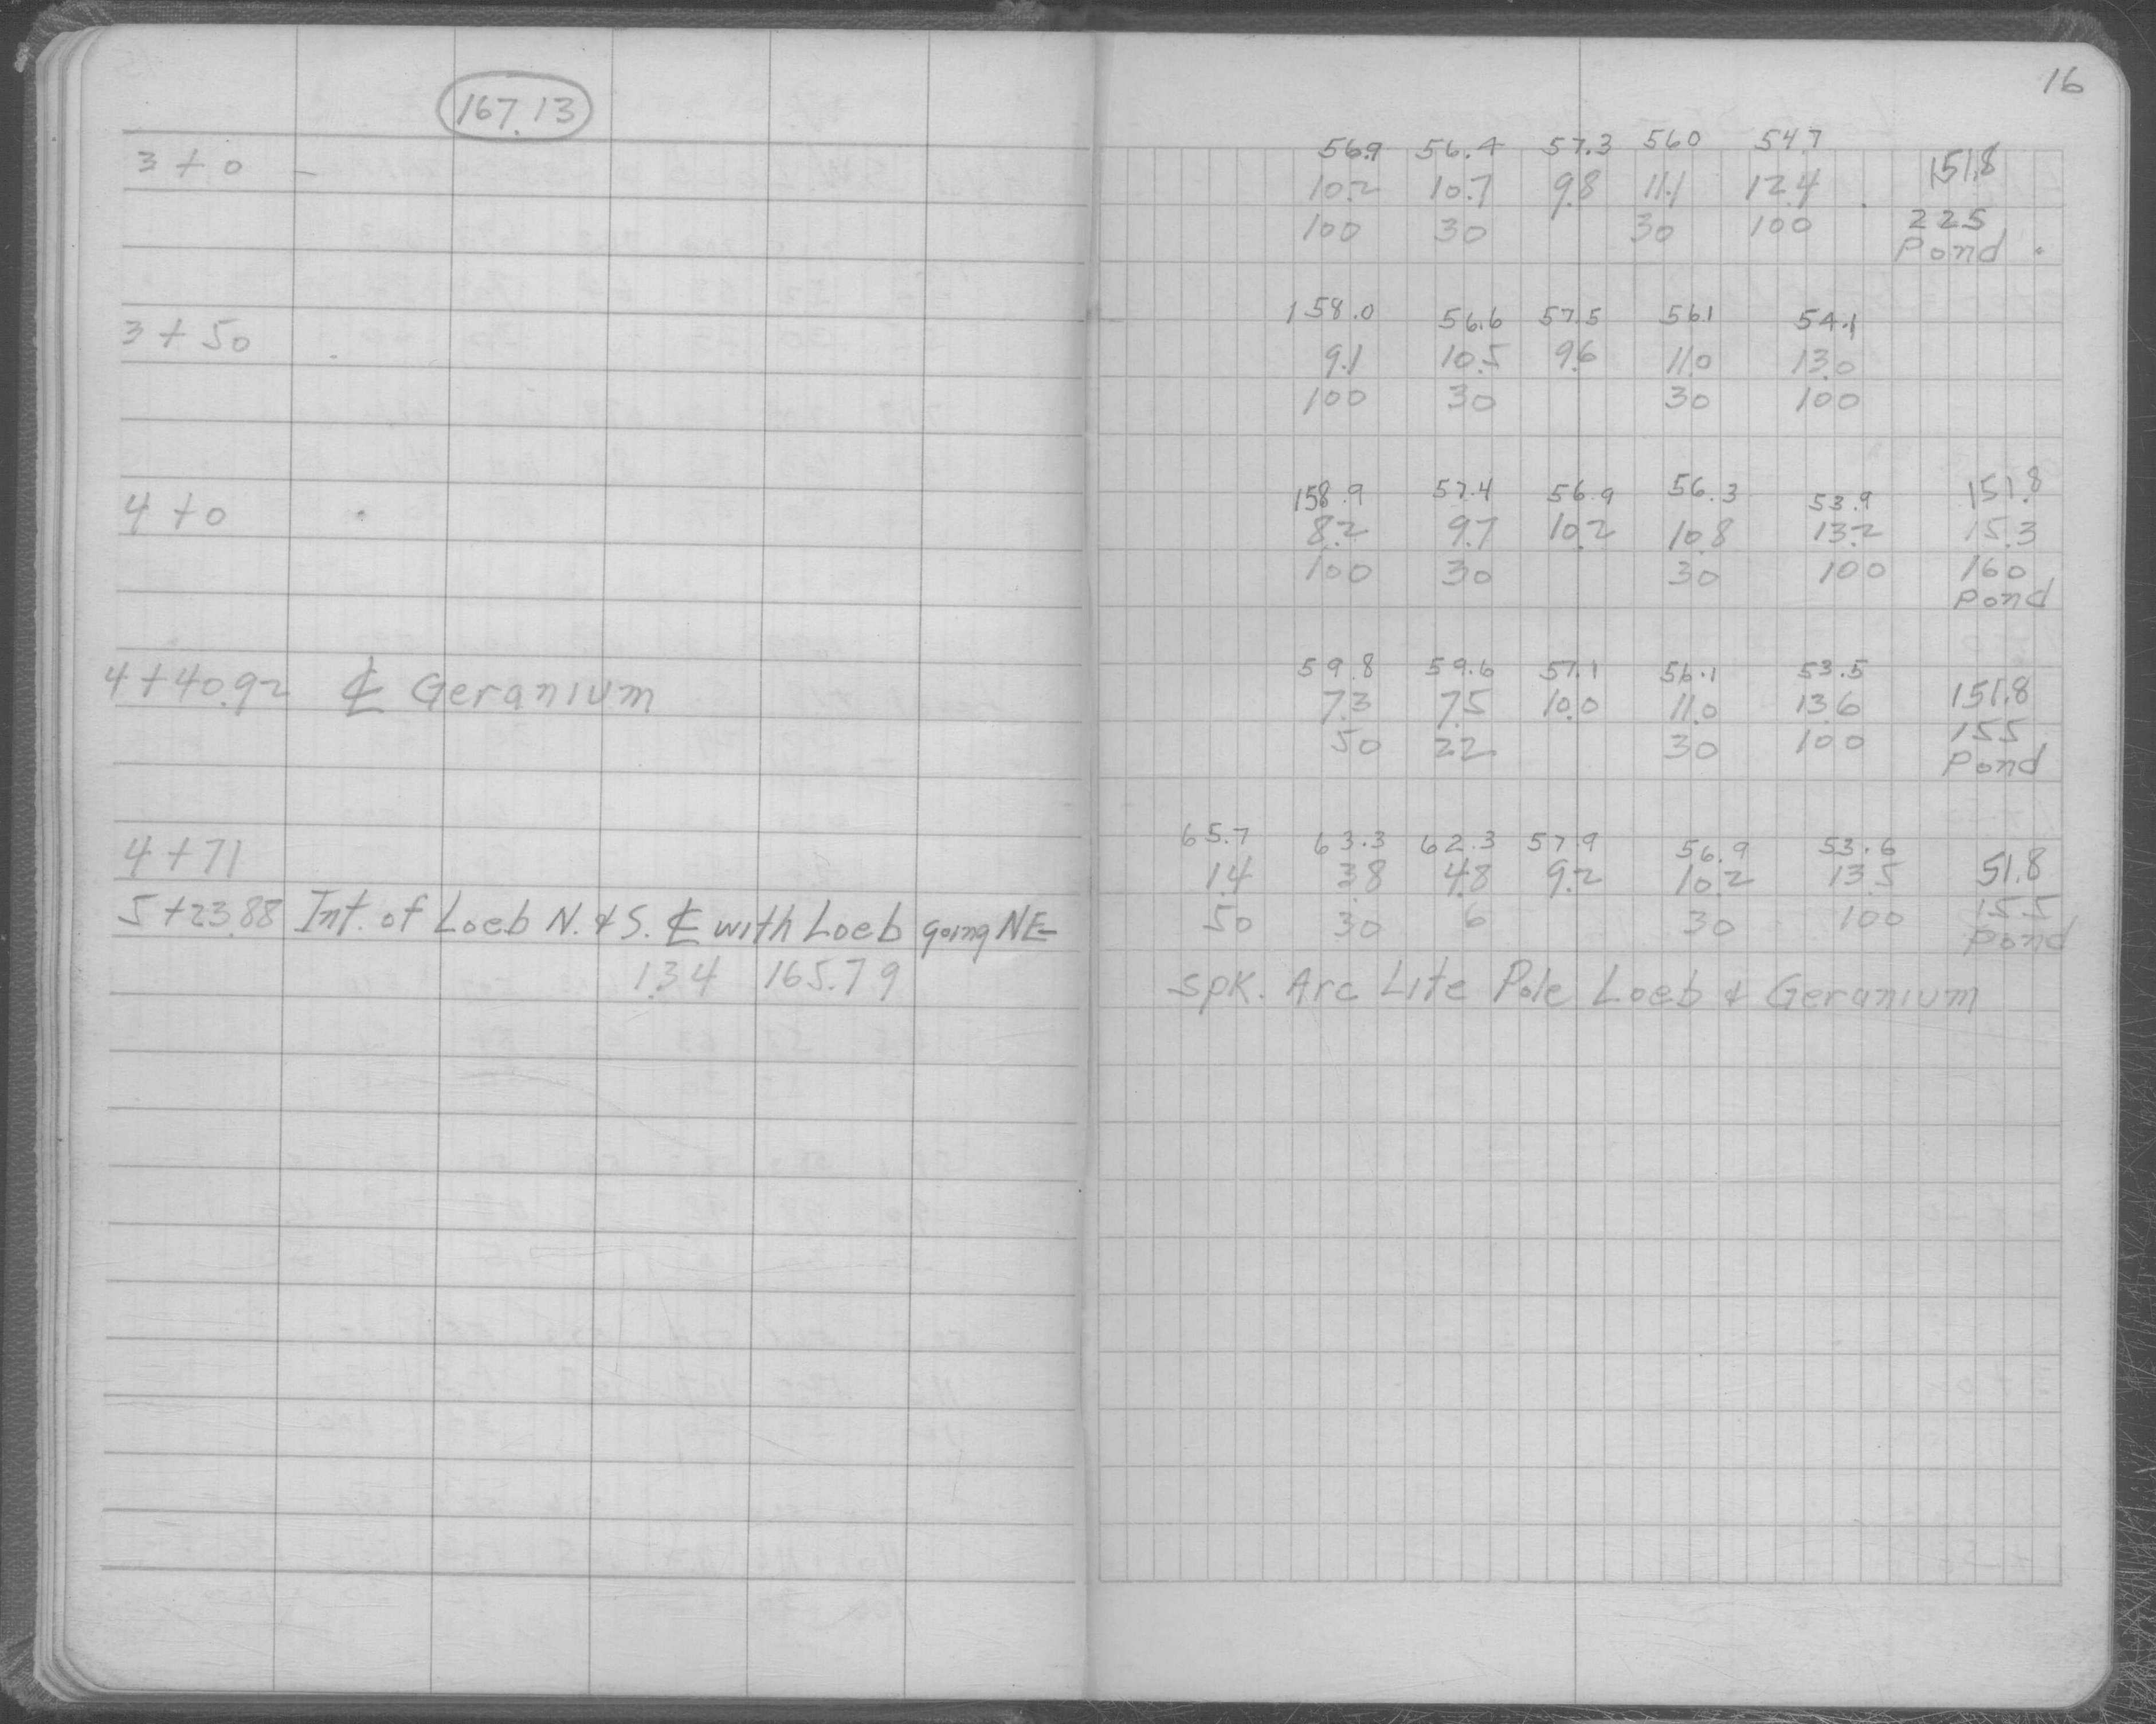 16
167.13
3+0 -
56.9 56.4 57.3 56.0 54.7 151.8
10.2 10.7 9.8 11.1 12.4
100 30 30 100 225
Pond
3+50
158.0 56.6 57.5 56.1 54.1
9.1 10.5 9.6 11.0 13.0
100 30 30 100
4+0
158.9 57.4 56.9 56.3 53.9 151.8
8.2 9.7 10.2 10.8 13.2 15.3
100 30 30 100 160
Pond
4+40.92 ℄ Geranium
59.8 59.6 57.1 56.1 53.5 151.8
7.3 7.5 10.0 11.0 13.6
50 22 30 100 155
Pond
4+71
65.7 63.3 62.3 57.9 56.9 53.6 51.8
1.4 3.8 4.8 9.2 10.2 13.5
50 30 6 30 100 155
Pond
5+23.88 Int. of Loeb N. & S. ℄ with Loeb going NE-
1.34 165.79
Spk. Arc Lite Pole Loeb & Geranium